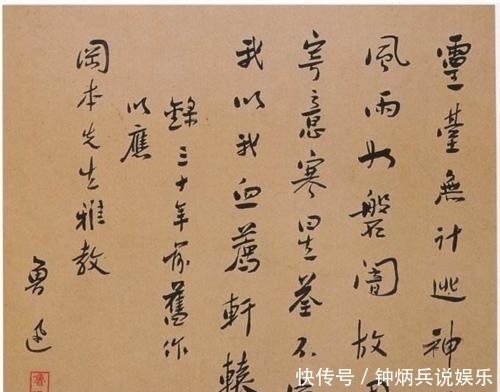 靈臺無計逃神
風雨如磐闇故
寄意寒星荃不
我以我血薦軒轅
錄三十年前舊作
以應
岡本先生雅教
魯迅
快传号 / 钟炳兵说娱乐